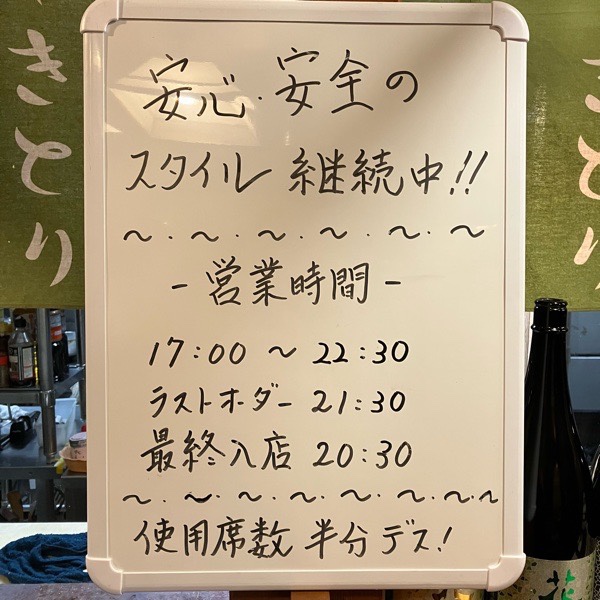 安心・安全の
スタイル 継続中!!
～・～・～・～・～・～
- 営業時間 -
17:00 ～ 22:30
ラストオーダー 21:30
最終入店 20:30
～・～・～・～・～・～・～
使用席数 半分デス!
きとり
きとり
花